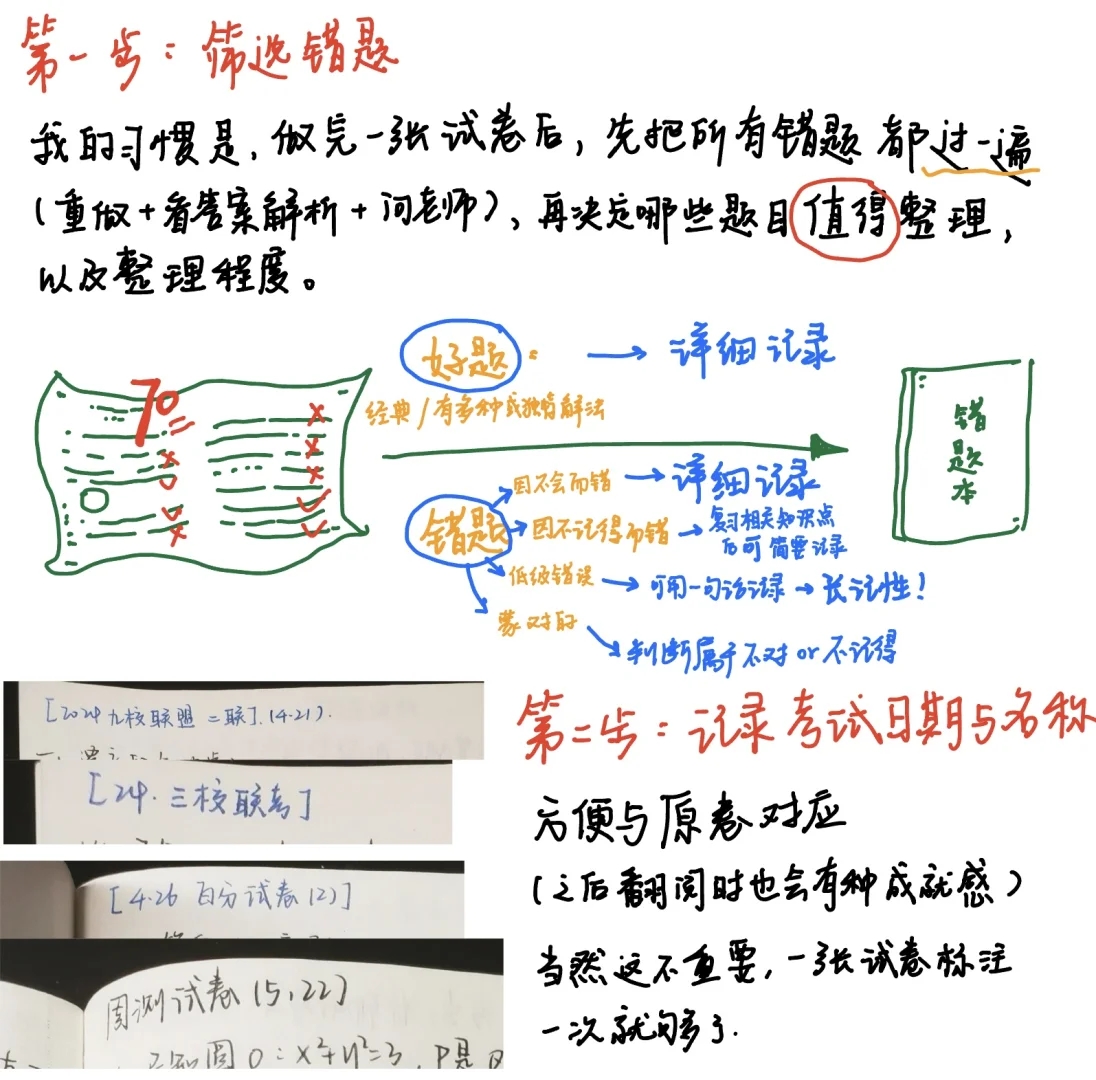 第一步：筛选错题
我的习惯是，做完一张试卷后，先把所有错题都过一遍
（重做+看答案解析+问老师），再决定哪些题目值得整理，
以及整理程度。
好题： → 详细记录
经典/有多种或独特解法
70
错题本
错题
因不会而错 → 详细记录
因不记得而错 → 复习相关知识点
后可简要记录
低级错误 → 可用一句话记录 → 长记性！
蒙对的
判断属于不对or不记得
[2024九校联盟二联].(4.21).
[24.三校联考]
[4.26 百分试卷(2)]
周测试卷(5.22]
已知圆O：x²+y²=3，P是
第二步：记录考试日期与名称
方便与原卷对应
（之后翻阅时也会有种成就感）
当然这不重要，一张试卷标注
一次就够了.